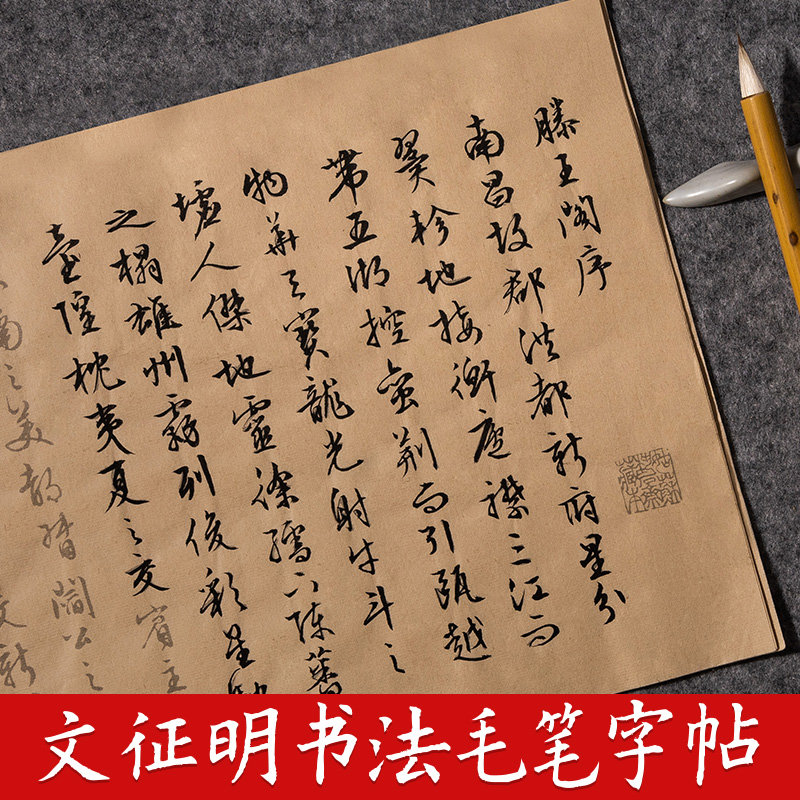 滕王閣序
南昌故郡洪都新府星分
翼軫地接衡廬襟三江而
帶五湖控蠻荊而引甌越
物華天寶龍光射牛斗之
墟人傑地靈徐孺下陳蕃
之榻雄州霧列俊彩星馳
臺隍枕夷夏之交賓主
南之美都督閻公之
新
文征明书法毛笔字帖